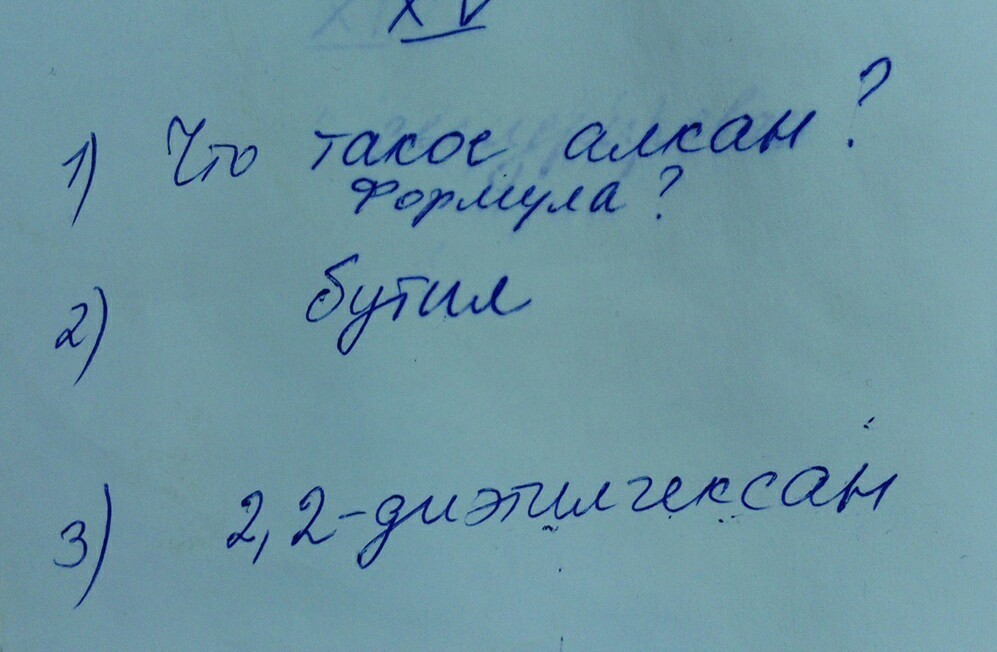 XV
1) Что такое алкан?
Формула?
2) бутил
3) 2,2-диэтилгексан